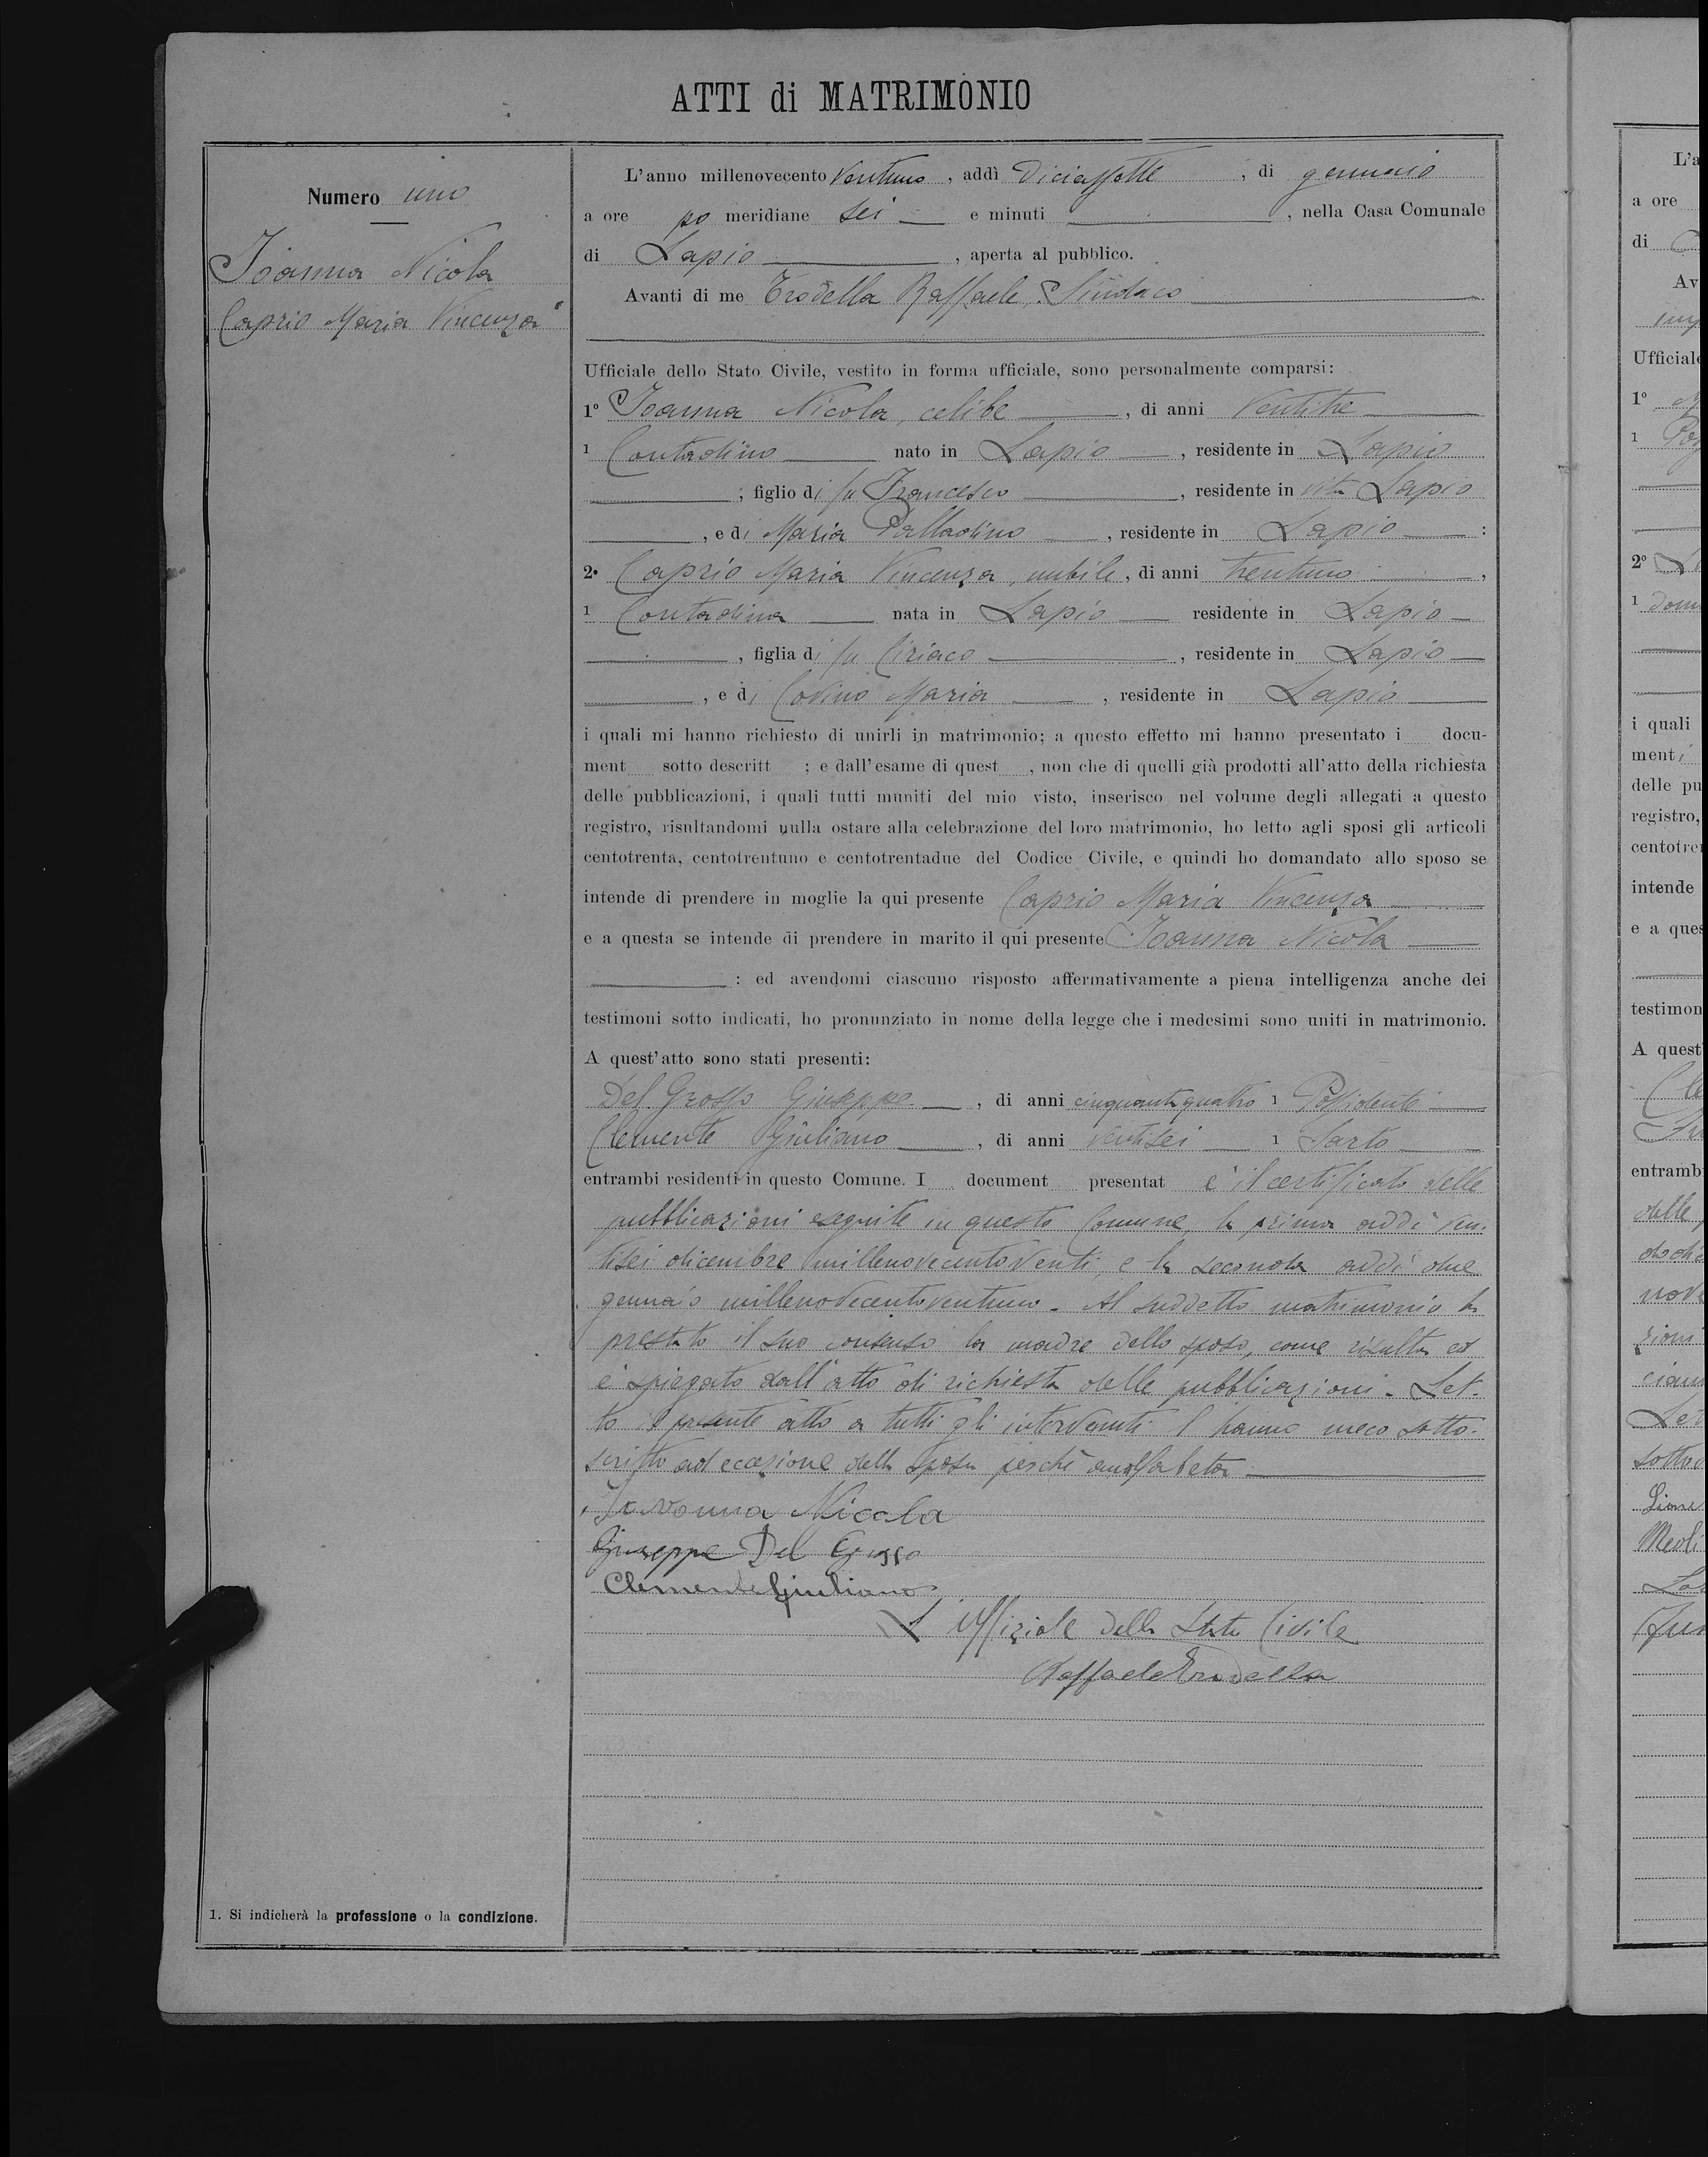 ATTI di MATRIMONIO
Numero uno
Ioanna Nicola
Caprio Maria Vincenza
L'anno millenovecento ventuno, addì diciassette, di gennaio
a ore po meridiane sei e minuti, nella Casa Comunale
di Lapio, aperta al pubblico.
Avanti di me Trodella Raffaele, Sindaco
Ufficiale dello Stato Civile, vestito in forma ufficiale, sono personalmente comparsi:
1° Ioanna Nicola, celibe, di anni ventitre
1 Contadino nato in Lapio, residente in Lapio
; figlio di fu Francesco, residente in vita Lapio
, e di Maria Palladino, residente in Lapio :
2° Caprio Maria Vincenza, nubile, di anni trentuno,
1 Contadina nata in Lapio residente in Lapio
, figlia di fu Ciriaco, residente in Lapio
, e di Covino Maria, residente in Lapio
i quali mi hanno richiesto di unirli in matrimonio; a questo effetto mi hanno presentato i docu-
ment sotto descritt ; e dall'esame di quest , non che di quelli già prodotti all'atto della richiesta
delle pubblicazioni, i quali tutti muniti del mio visto, inserisco nel volume degli allegati a questo
registro, risultandomi nulla ostare alla celebrazione del loro matrimonio, ho letto agli sposi gli articoli
centotrenta, centotrentuno e centotrentadue del Codice Civile, e quindi ho domandato allo sposo se
intende di prendere in moglie la qui presente Caprio Maria Vincenza
e a questa se intende di prendere in marito il qui presente Ioanna Nicola
: ed avendomi ciascuno risposto affermativamente a piena intelligenza anche dei
testimoni sotto indicati, ho pronunziato in nome della legge che i medesimi sono uniti in matrimonio.
A quest'atto sono stati presenti:
Del Grosso Giuseppe, di anni cinquantaquattro 1 Possidente
Clemente Giuliano, di anni ventisei 1 Sarto
entrambi residenti in questo Comune. I document presentat è il certificato delle
pubblicazioni eseguite in questo Comune, la prima addì ven-
tisei dicembre millenovecentoventi, e la seconda addì due
gennaio millenovecentoventuno. Al suddetto matrimonio ha
prestato il suo consenso la madre dello sposo, come risulta ed
è spiegato dall'atto di richiesta delle pubblicazioni. Let-
to il presente atto a tutti gli intervenuti l'hanno meco sotto-
scritto ad eccezione della sposa perchè analfabeta
Nicola
Giuseppe Del Grosso
Clemente Giuliano
L'Uffiziale dello Stato Civile
Raffaele Trodella
1. Si indicherà la professione o la condizione.